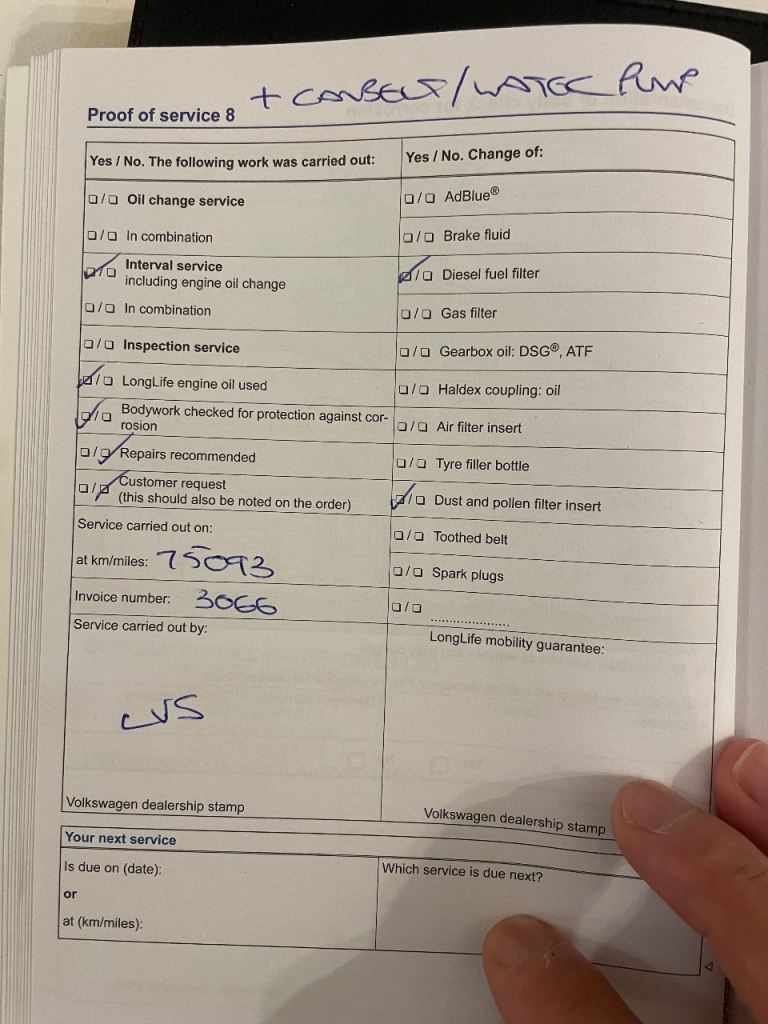 + CAMBELT/WATER PUMP
Proof of service 8
Yes / No. The following work was carried out:
❑/❑ Oil change service
❑/❑ In combination
❑/❑ Interval service
including engine oil change
❑/❑ In combination
❑/❑ Inspection service
❑/❑ LongLife engine oil used
❑/❑ Bodywork checked for protection against cor-
rosion
❑/❑ Repairs recommended
❑/❑ Customer request
(this should also be noted on the order)
Service carried out on:
at km/miles: 75093
Invoice number: 3066
Service carried out by:
Volkswagen dealership stamp
Yes / No. Change of:
❑/❑ AdBlue®
❑/❑ Brake fluid
❑/❑ Diesel fuel filter
❑/❑ Gas filter
❑/❑ Gearbox oil: DSG®, ATF
❑/❑ Haldex coupling: oil
❑/❑ Air filter insert
❑/❑ Tyre filler bottle
❑/❑ Dust and pollen filter insert
❑/❑ Toothed belt
❑/❑ Spark plugs
❑/❑ ......................
LongLife mobility guarantee:
Volkswagen dealership stamp
Your next service
Is due on (date):
or
at (km/miles):
Which service is due next?